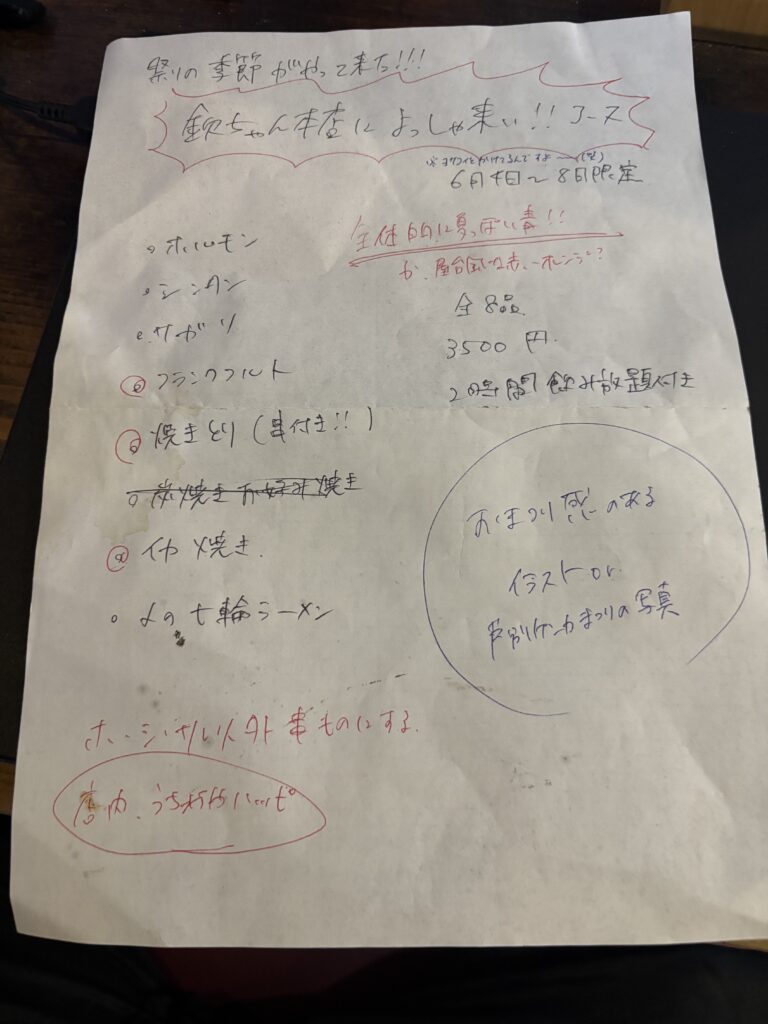 祭りの季節がやって来た!!!
金次ちゃん本店によっしゃ来い!! コース
6月4日〜8日限定
全体的に夏っぽい青!!
か、屋台風な赤、オレンジ?
。ホルモン
。シンタン
。サガリ
全8品
3500円
2時間飲み放題付き
フランクフルト
焼きとり(串付き!!)
。炭焼きお好み焼き
イカ焼き
。〆の七輪ラーメン
おまつり感のある
イラスト or
まつりの写真
以外串ものにする
店内、うちわやハッピ